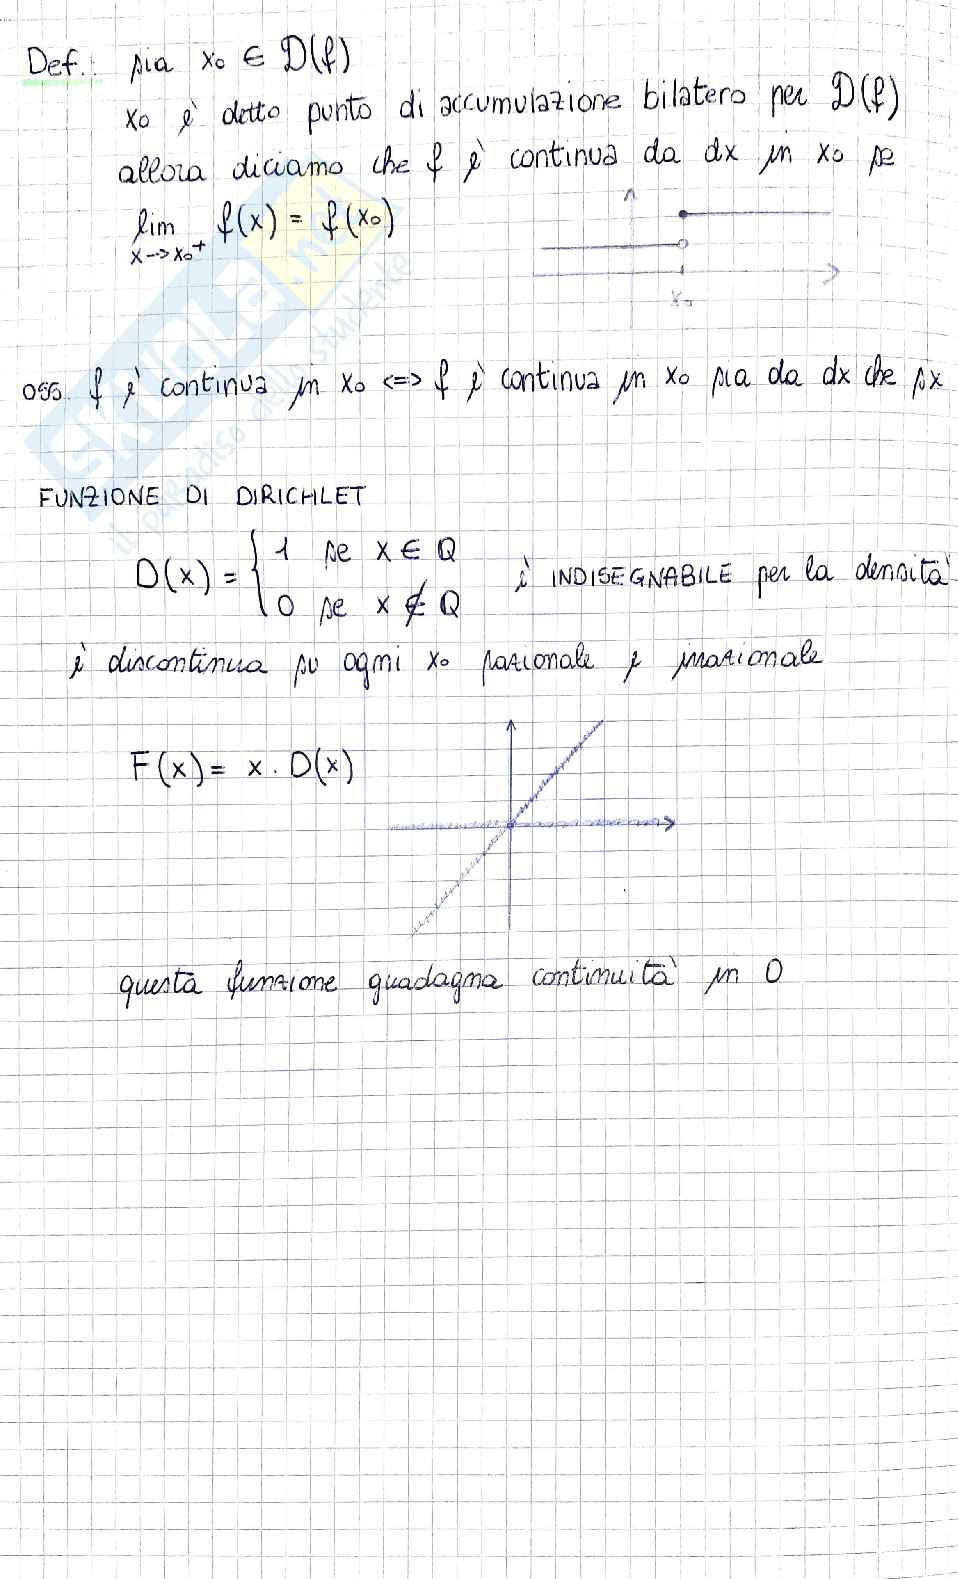 Def.: sia x₀ ∈ D(f)
x₀ è detto punto di accumulazione bilatero per D(f)
allora diciamo che f è continua da dx in x₀ se
lim f(x) = f(x₀)
x->x₀⁺
x₀
oss. f è continua in x₀ <=> f è continua in x₀ sia da dx che sx
FUNZIONE DI DIRICHLET
D(x) = { 1 se x ∈ Q
0 se x ∉ Q
è INDISEGNABILE per la densità
è discontinua su ogni x₀ razionale e irrazionale
F(x) = x . D(x)
questa funzione guadagna continuità in 0
SKUOLA.net
il paradiso dello studente